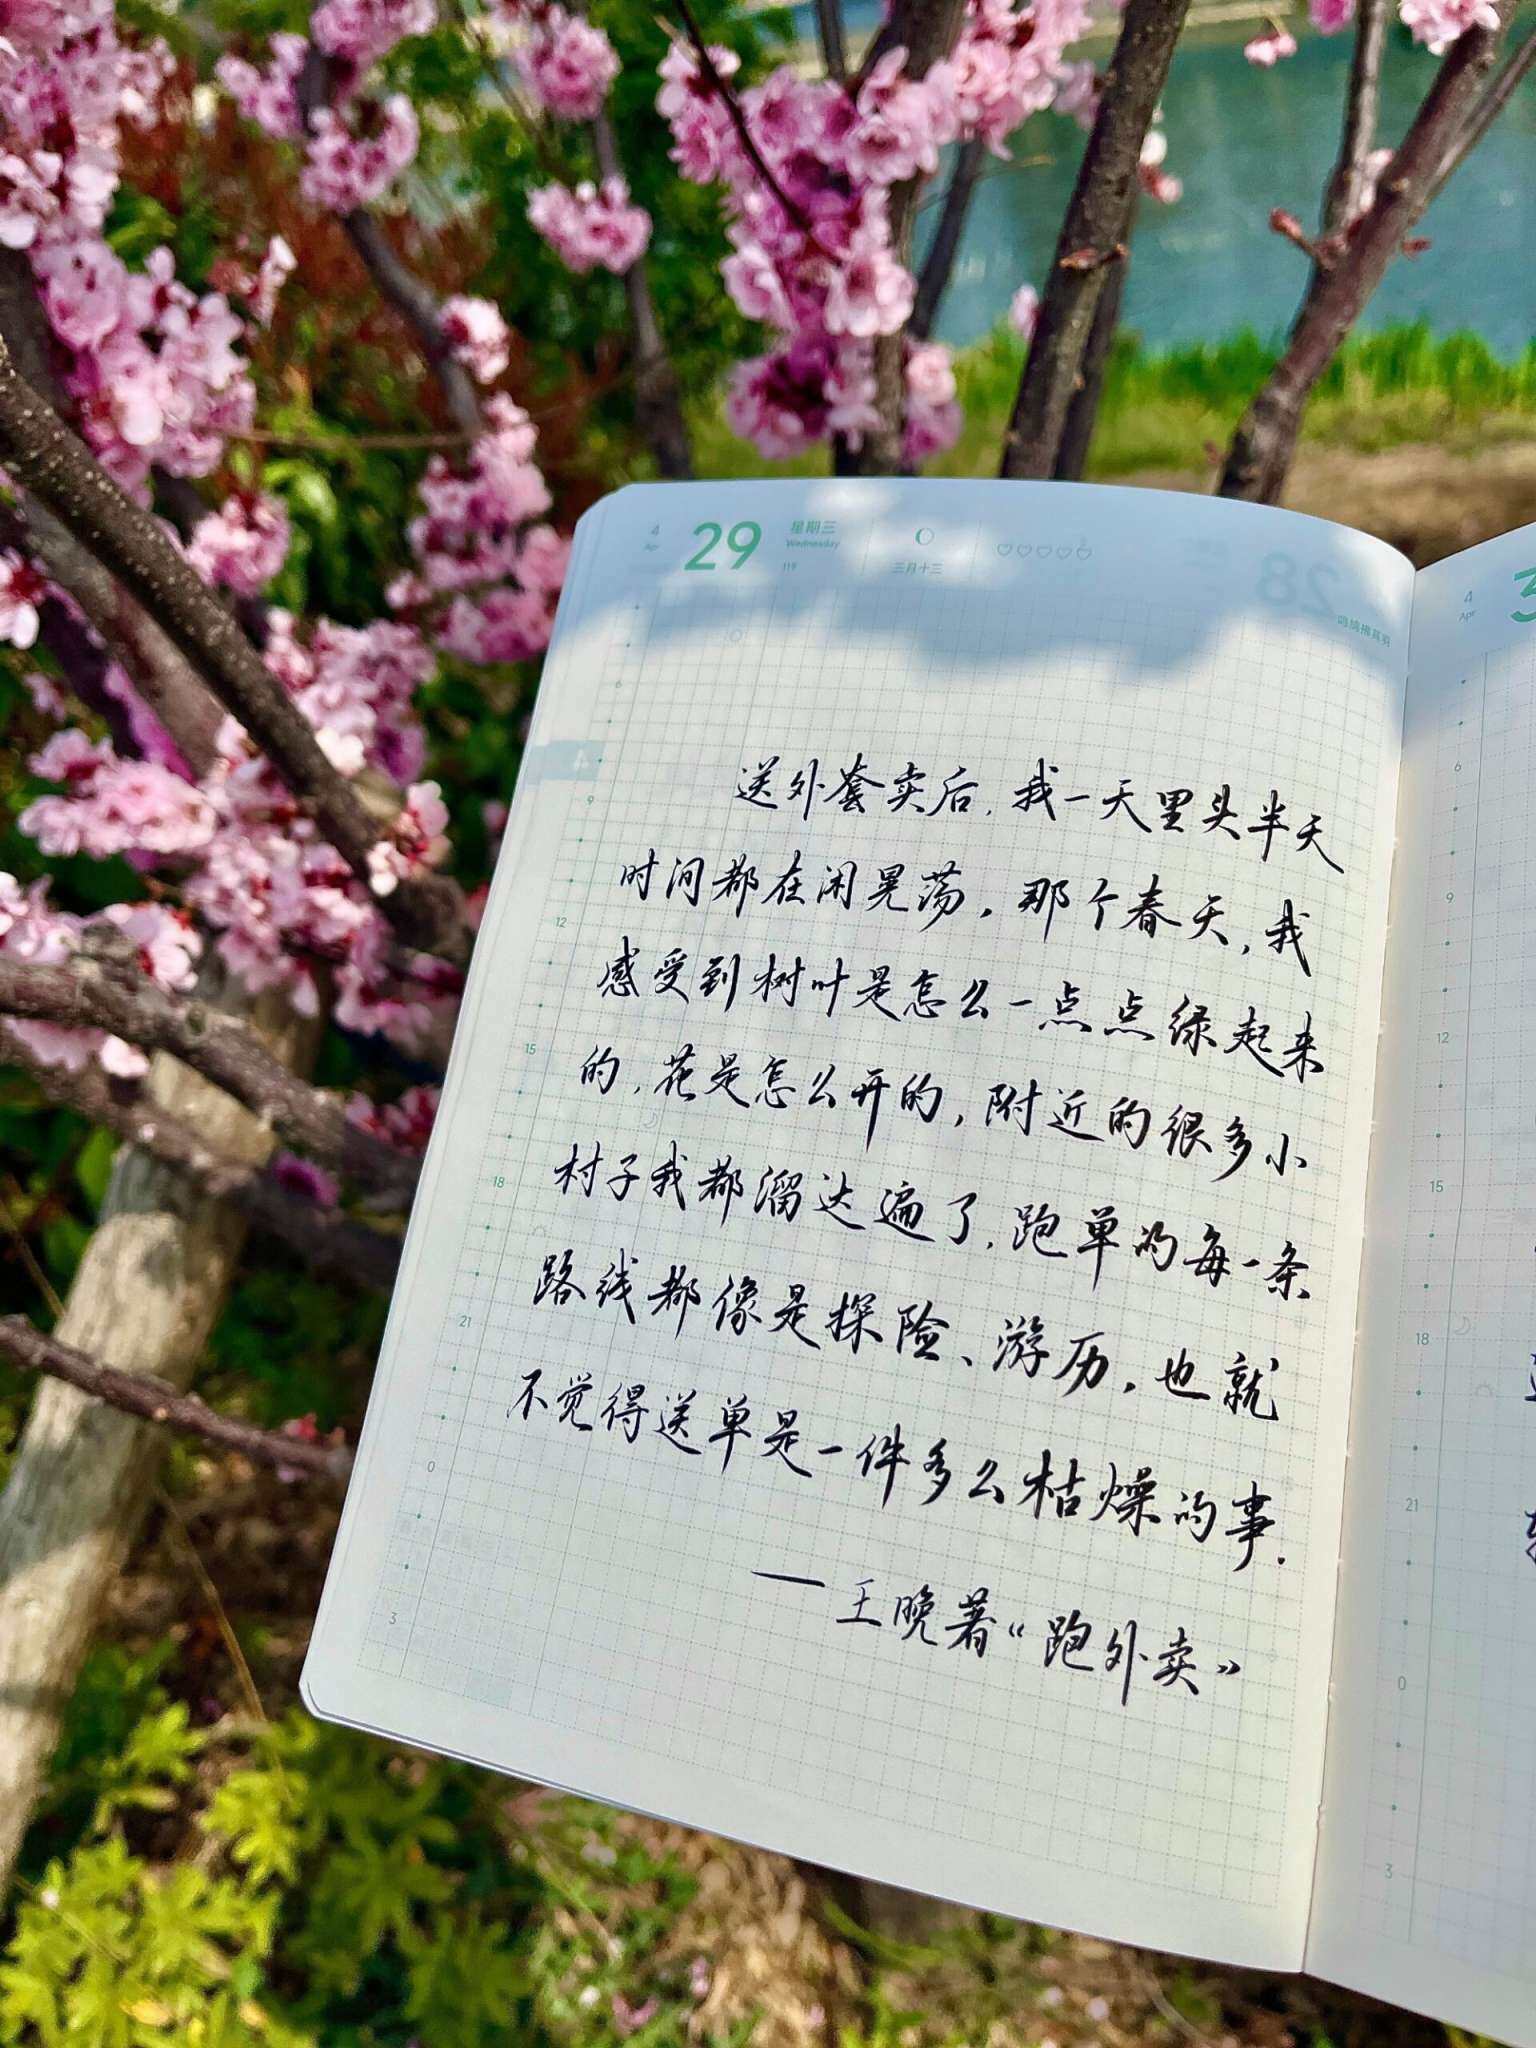 4
Apr
29
星期三
Wednesday
119
三月十三
28
鸣鸠拂其羽
4
6
9
12
15
18
21
0
3
送外套卖后，我一天里头半天
时间都在闲晃荡，那个春天，我
感受到树叶是怎么一点点绿起来
的，花是怎么开的，附近的很多小
村子我都溜达遍了，跑单的每一条
路线都像是探险、游历，也就
不觉得送单是一件多么枯燥的事.
—王晚著《跑外卖》
4
Apr
3
6
9
12
15
18
21
0
3